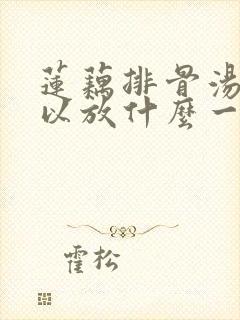 蓮藕排骨湯
以放什麼一
霍松